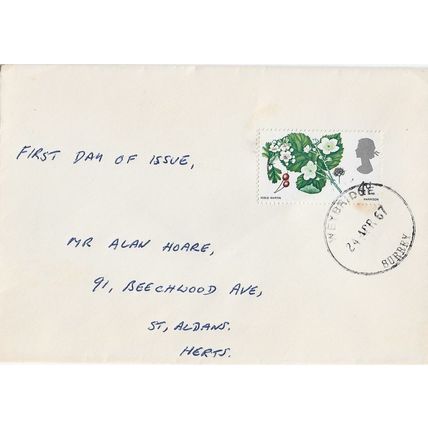 FIRST DAY OF ISSUE,
4D
HARRISON
WEYBRIDGE
24 APR 67
SURREY
MR ALAN HOARE,
91, BEECHWOOD AVE,
ST, ALBANS.
HERTS.